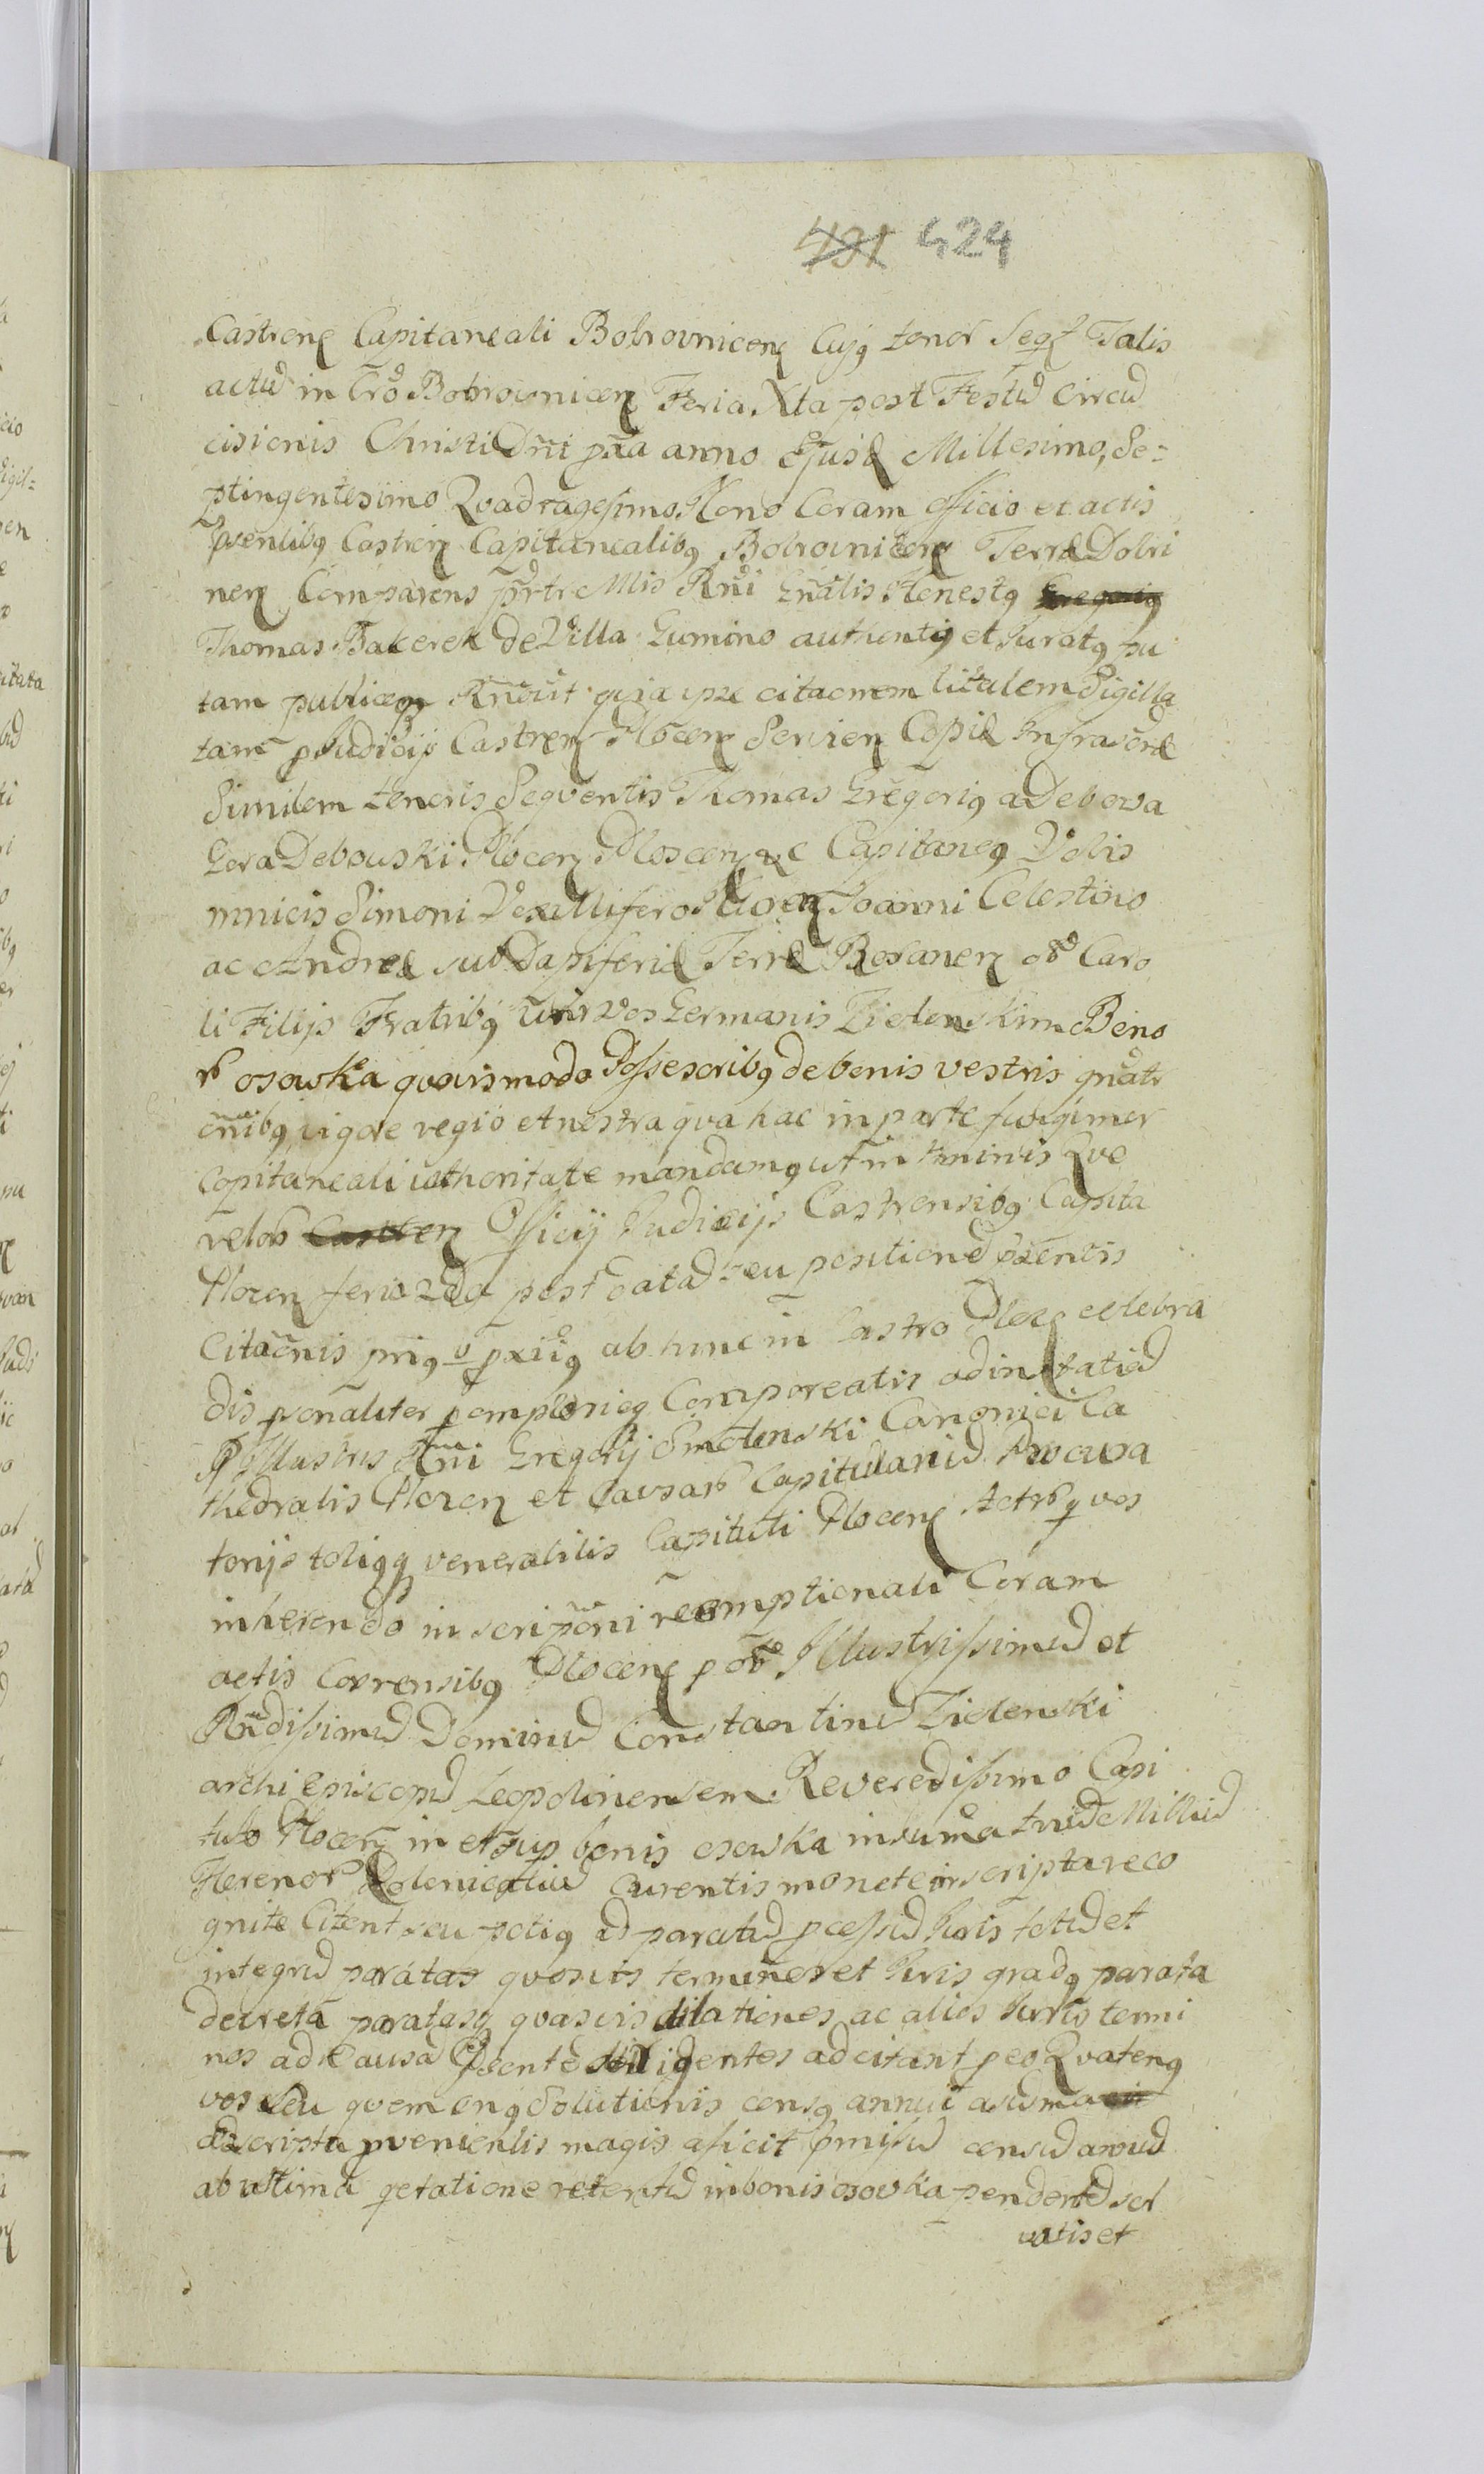 491 424
Castren Capitaneali Bobrovnicen Cujq tenor Seqr Talis
actu in Cro Bobrovnicen Feria Xta post Festu Circu
cisionis Christi Dni pxa anno Ejusd Millesimo, Se-
ptingentesimo Quadragesimo Nono Coram officio et actis
psentibq Castren Capitanealibq Bobrovnicen Terrae Dobri
nen Comparens prtr Mis Rndi Gnalis Honestq Gregoriq
Thomas Bakerek de Villa Gumino authentiq et Juratq
tam publiceq Rnovit quia ipse citaonem litalem Sigilla
tam pJudicijs Castren Plocen Servien Copie Infrascrae
Similem tenoris Sequentis Thomas Gregoriq a Debowa
Gora Debowski Plocen Ploscenq c Capitaneq Vobis
mnicis Simoni Vexillifero Plocen Joanni Celestino
ac Andreae subDapiferis Terrae Rosanen oD Caro
li Filijs Fratribq inter vos Germanis Zielenskim Bono
r osowka quovismodo Possessoribq de bonis vestris gnatr
omibq vigore regio et nostra qva hac in parte fungimer
Capitaneali authoritate mandamq ut in tminis Que
relar Castren Officij Judicijs Castrensibq Capita
Plocen feria 2da post data seu positione pxentis
Citaonis priq v pxiiq ab hinc in Castro Ploce celebra
dis psonaliter pemptorieq Compareatis ad instatia
Pillustris Rni Gregorij Smolenski Canonici Ca
thedralis Plocen et Causar Capitulariu Procura
torijs toliqq venerabilis Capituli Plocen Actrq vos
inherendo inscriptioni reemptionali Coram
actis Castrensibq Plocen p oD Illustrissimu et
Rndissimu Dominu Constantinu Zielenski
archi Episcopu Leopoliensem Reveredissimo Capi
tulo Plocen in et sup bonis osowka in suma triu Milliu
Florenor Polonicaliu Curentis monete inscripta reco
gnite Citent seu potiq ad paratu pcessu Juris totu et
integru paratas quosvis terminos et Juris gradq parata
decreta paratasq quasvis dilationes ac alios Juris termi
nos ad Causa psente diligentes adcitant peo Quatenq
vos seu quem onq Solutionis censq annui a suma
adscripta pvenientis magis aficit pmissu censu annu
ab ultima qetatione retentu in bonis osowka pendente sol
vatis et